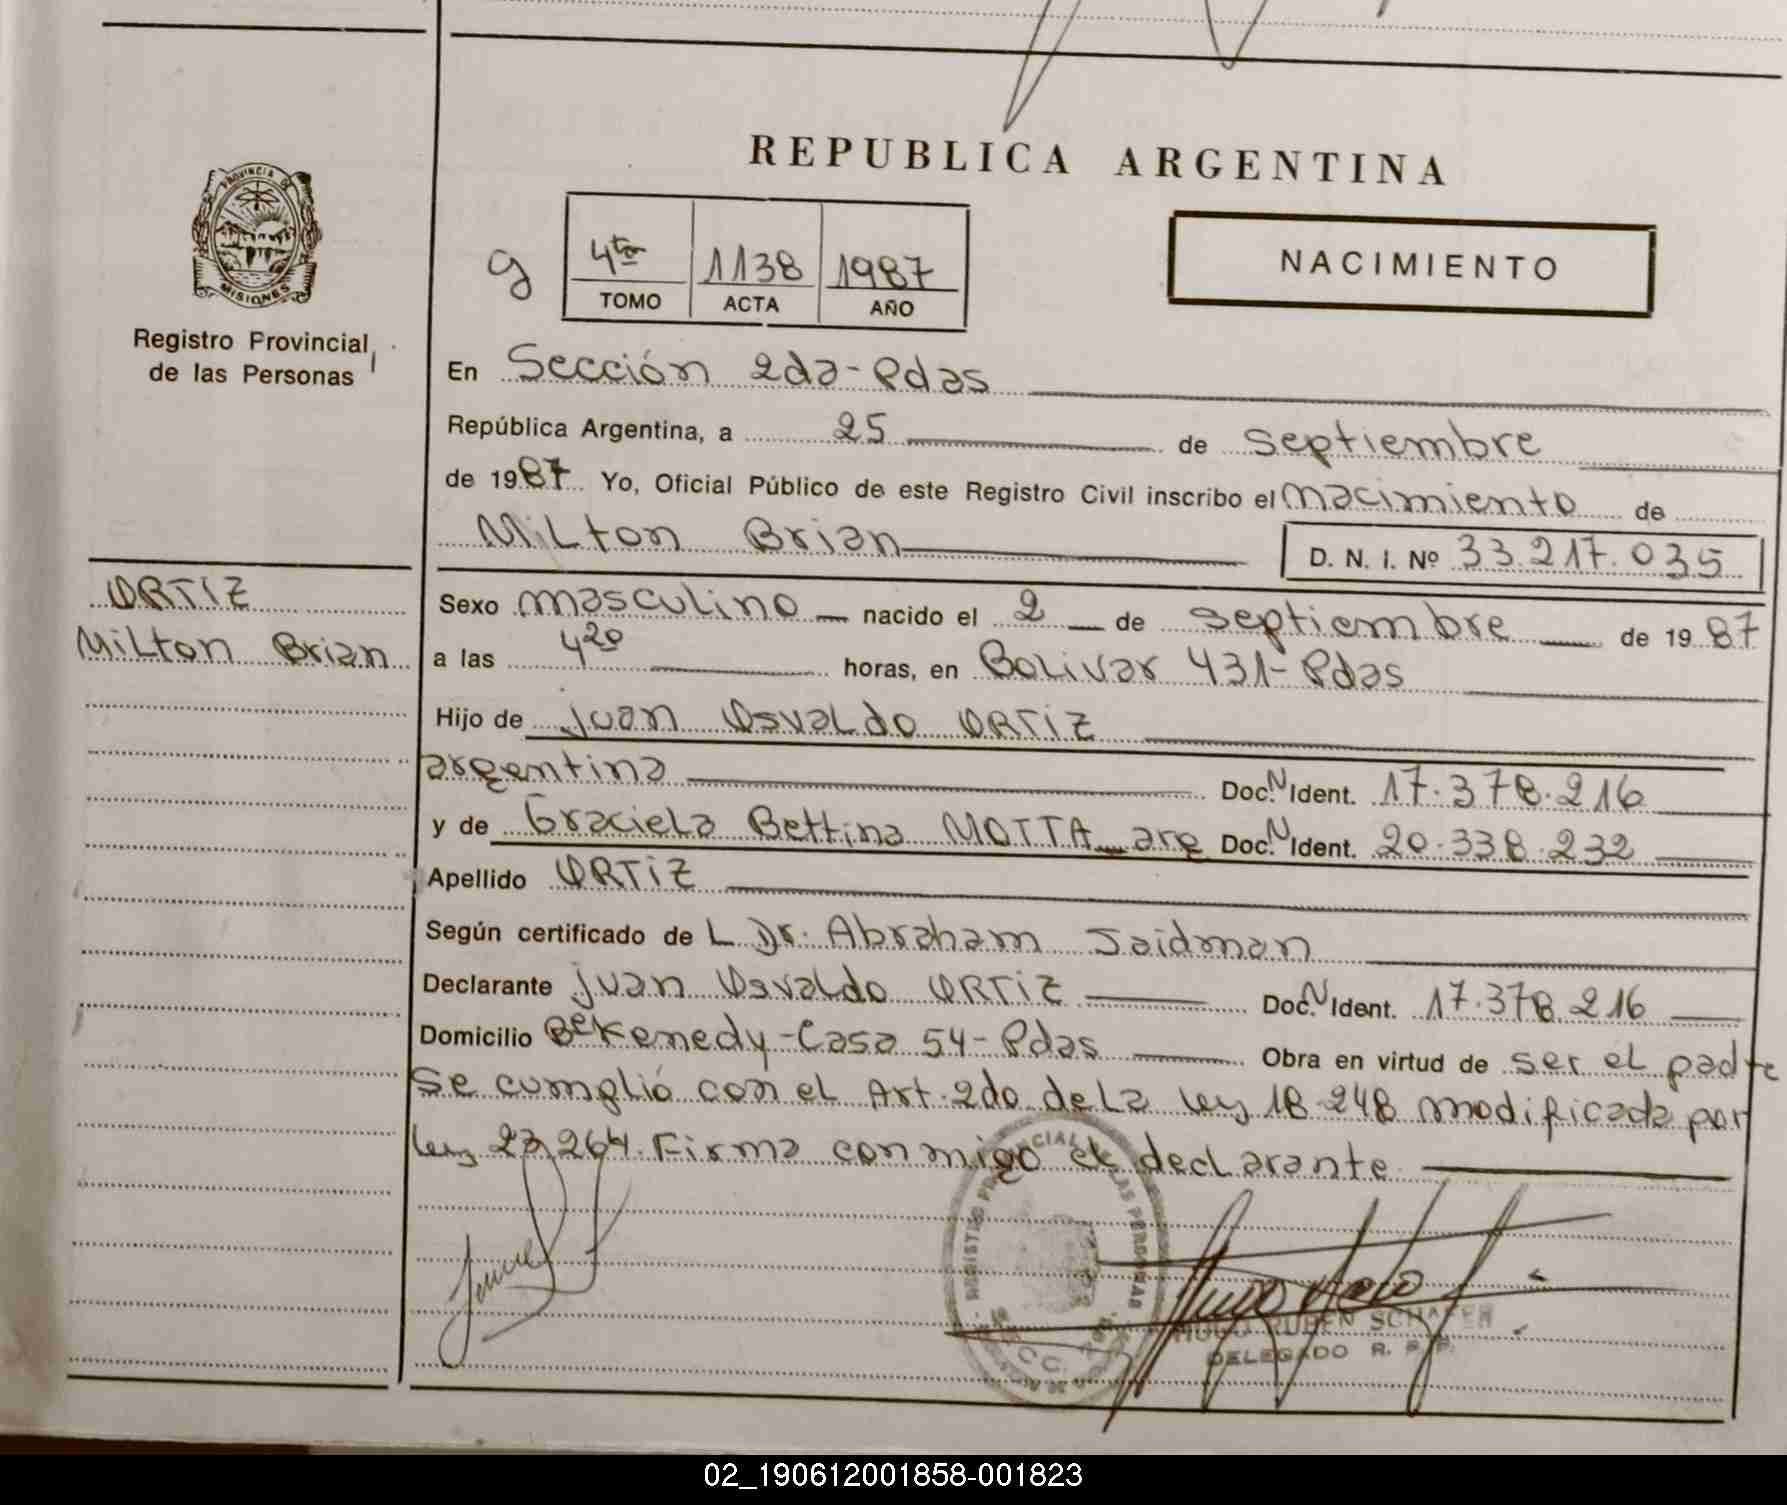 REPUBLICA ARGENTINA
PROVINCIA DE
MISIONES
Registro Provincial
de las Personas
g
4to 1138 1987
TOMO ACTA AÑO
NACIMIENTO
En Sección 2da-Pdas
República Argentina, a 25 de septiembre
de 1987 Yo, Oficial Público de este Registro Civil inscribo el nacimiento de
Milton Brian
D. N. I. Nº 33.217.035
ORTIZ
Milton Brian
Sexo masculino nacido el 2 de septiembre de 1987
a las 4 20 horas, en Bolivar 431-Pdas
Hijo de juan Osvaldo ORTIZ
argentina Doc. N Ident. 17.378.216
y de Graciela Bettina MOTTA arg Doc. N Ident. 20.338.232
Apellido ORTIZ
Según certificado de L Dr. Abraham Saidman
Declarante juan Osvaldo ORTIZ Doc. N Ident. 17.378.216
Domicilio Be Kenedy-Casa 54-Pdas Obra en virtud de ser el padre
se cumplió con el Art. 2do de La Ley 18.248 modificada por
Ley 23.264. Firma conmigo el declarante
HUGO RUBEN SCHAFER
DELEGADO R. P. P.
02_190612001858-001823